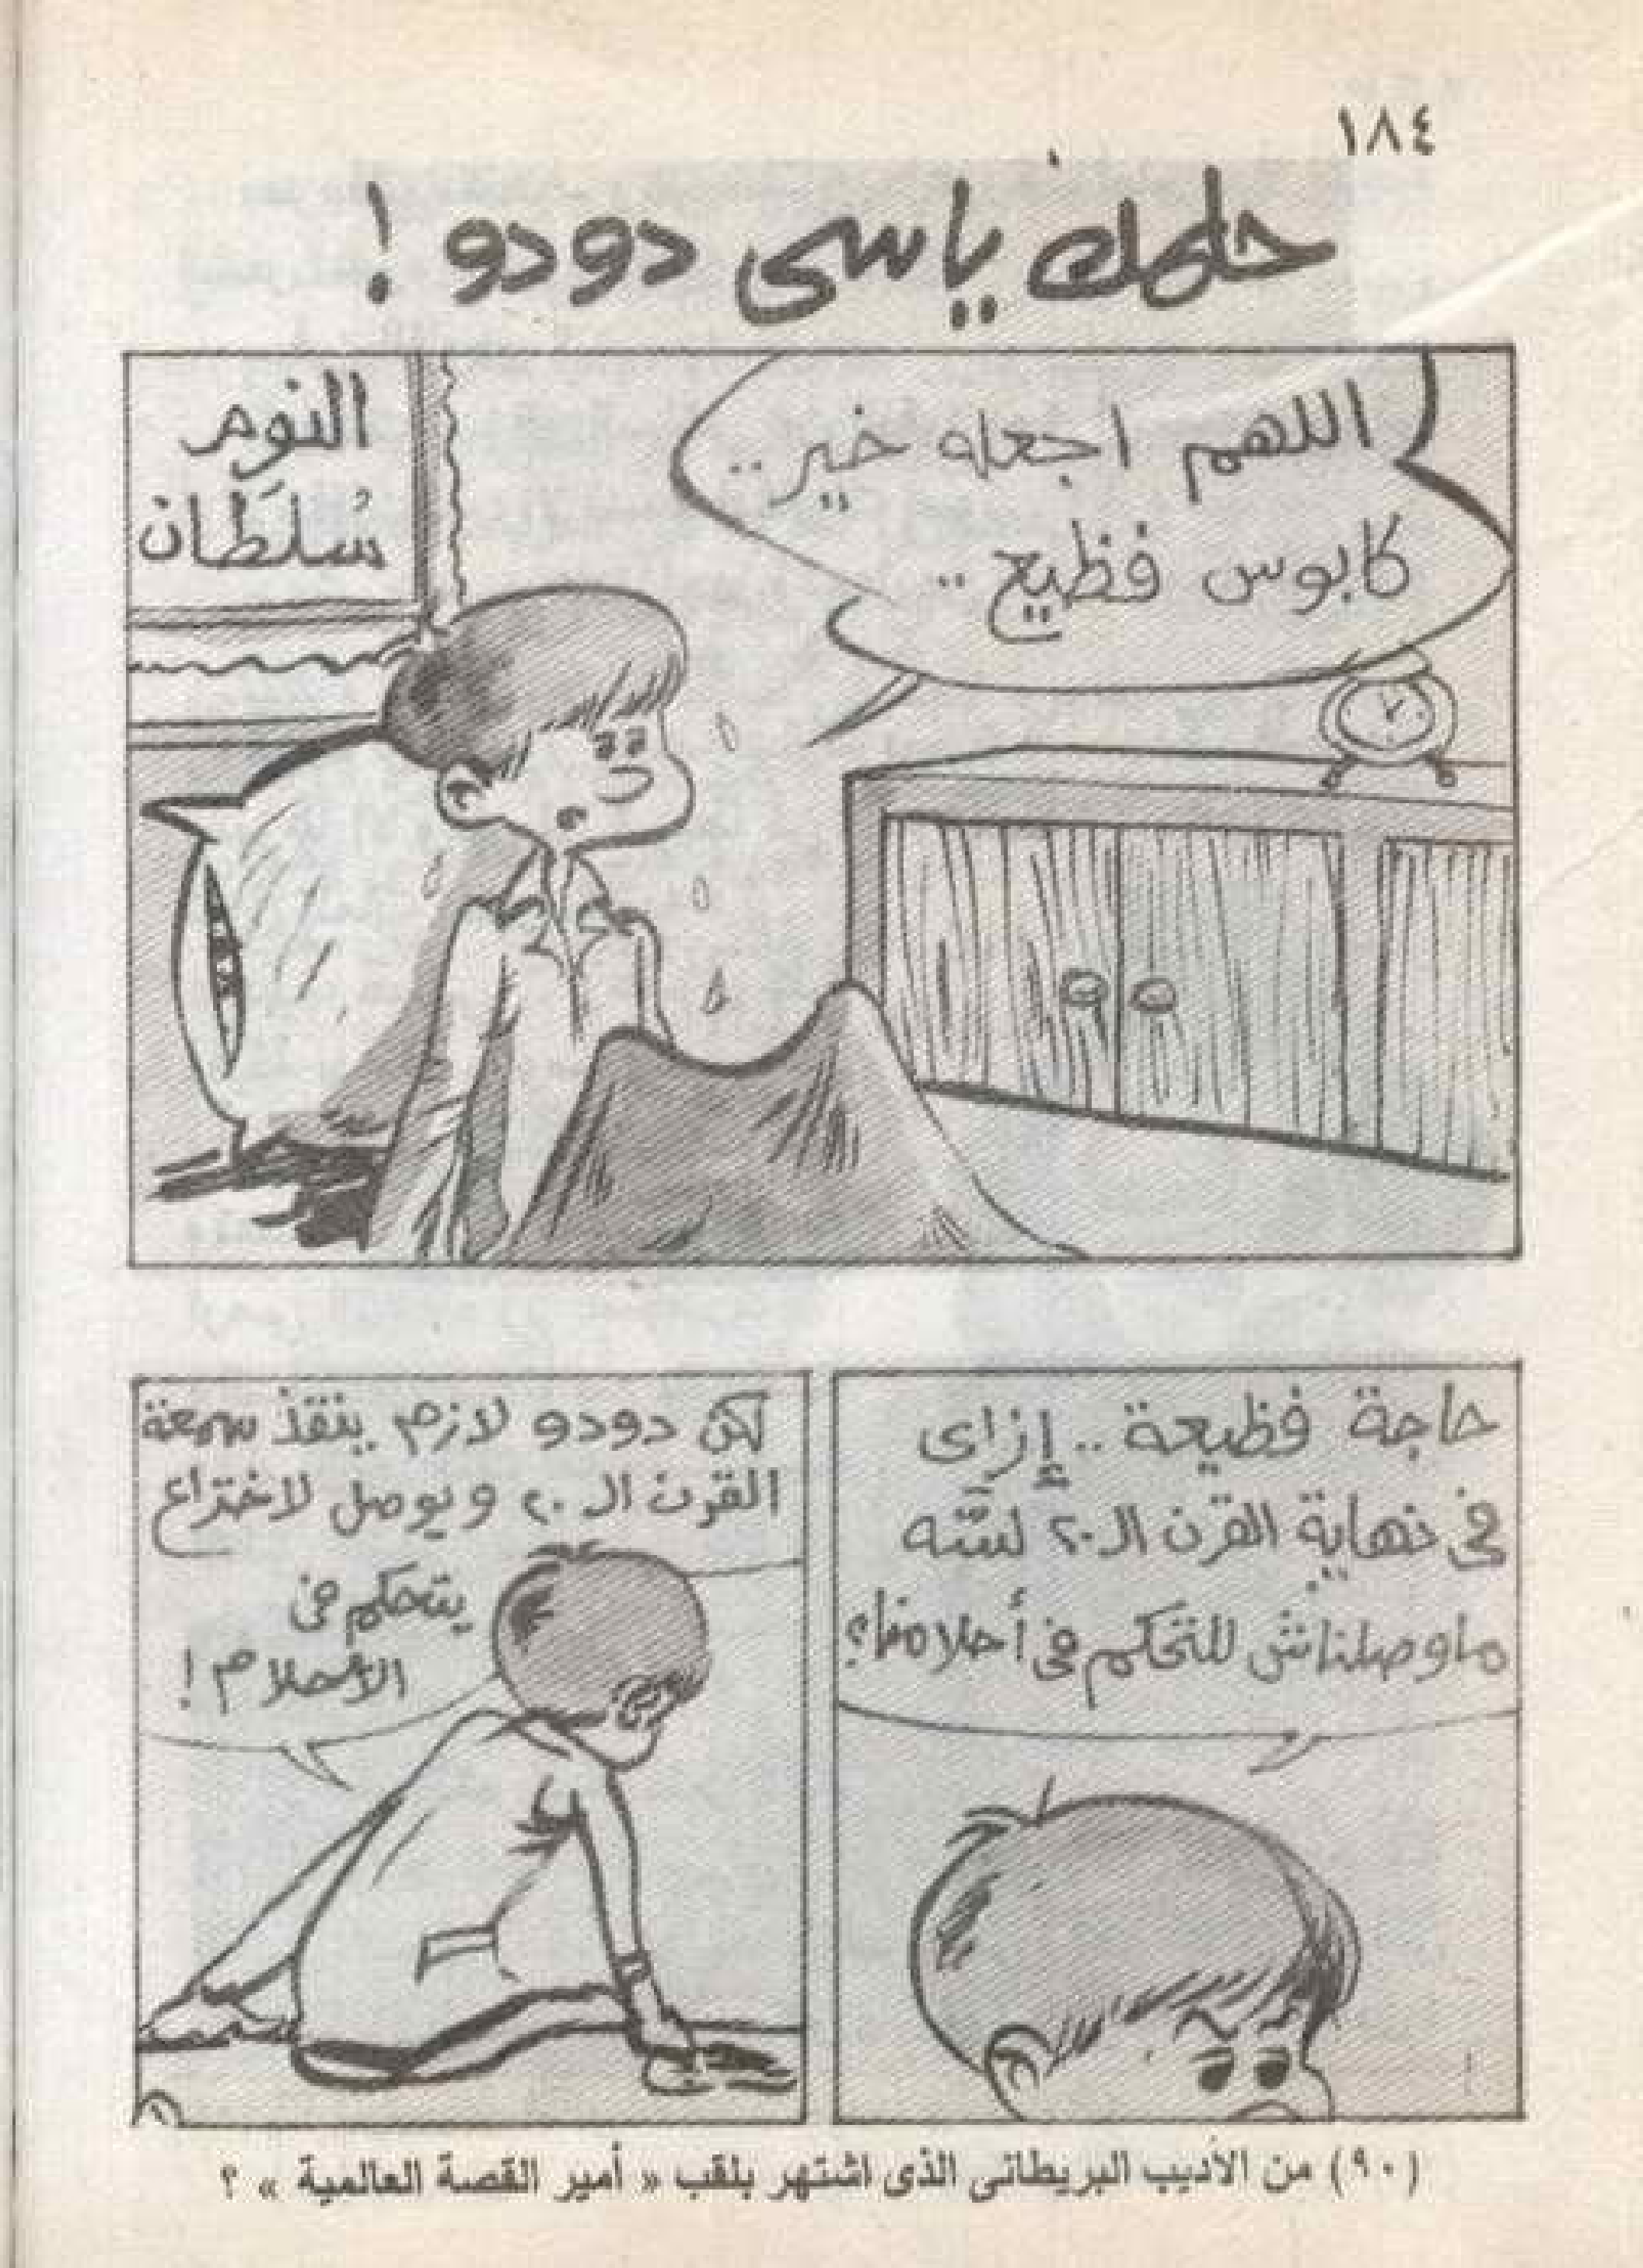 ١٨٤
حلمك ياسى دودو !
اللهم اجعله خير..
كابوس فظيع ..
النوم
سُلطَان
حاجة فظيعة .. إزاى
فى نهاية القرن الـ ٢٠ لسّه
ماوصلناش للتحكم فى أحلامنا؟
لكن دودو لازم ينقذ سمعة
القرن الـ ٢٠ ويوصل لاختراع
يتحكم فى
الأحلام !
١
(٩٠) من الأديب البريطانى الذى اشتهر بلقب « أمير القصة العالمية » ؟